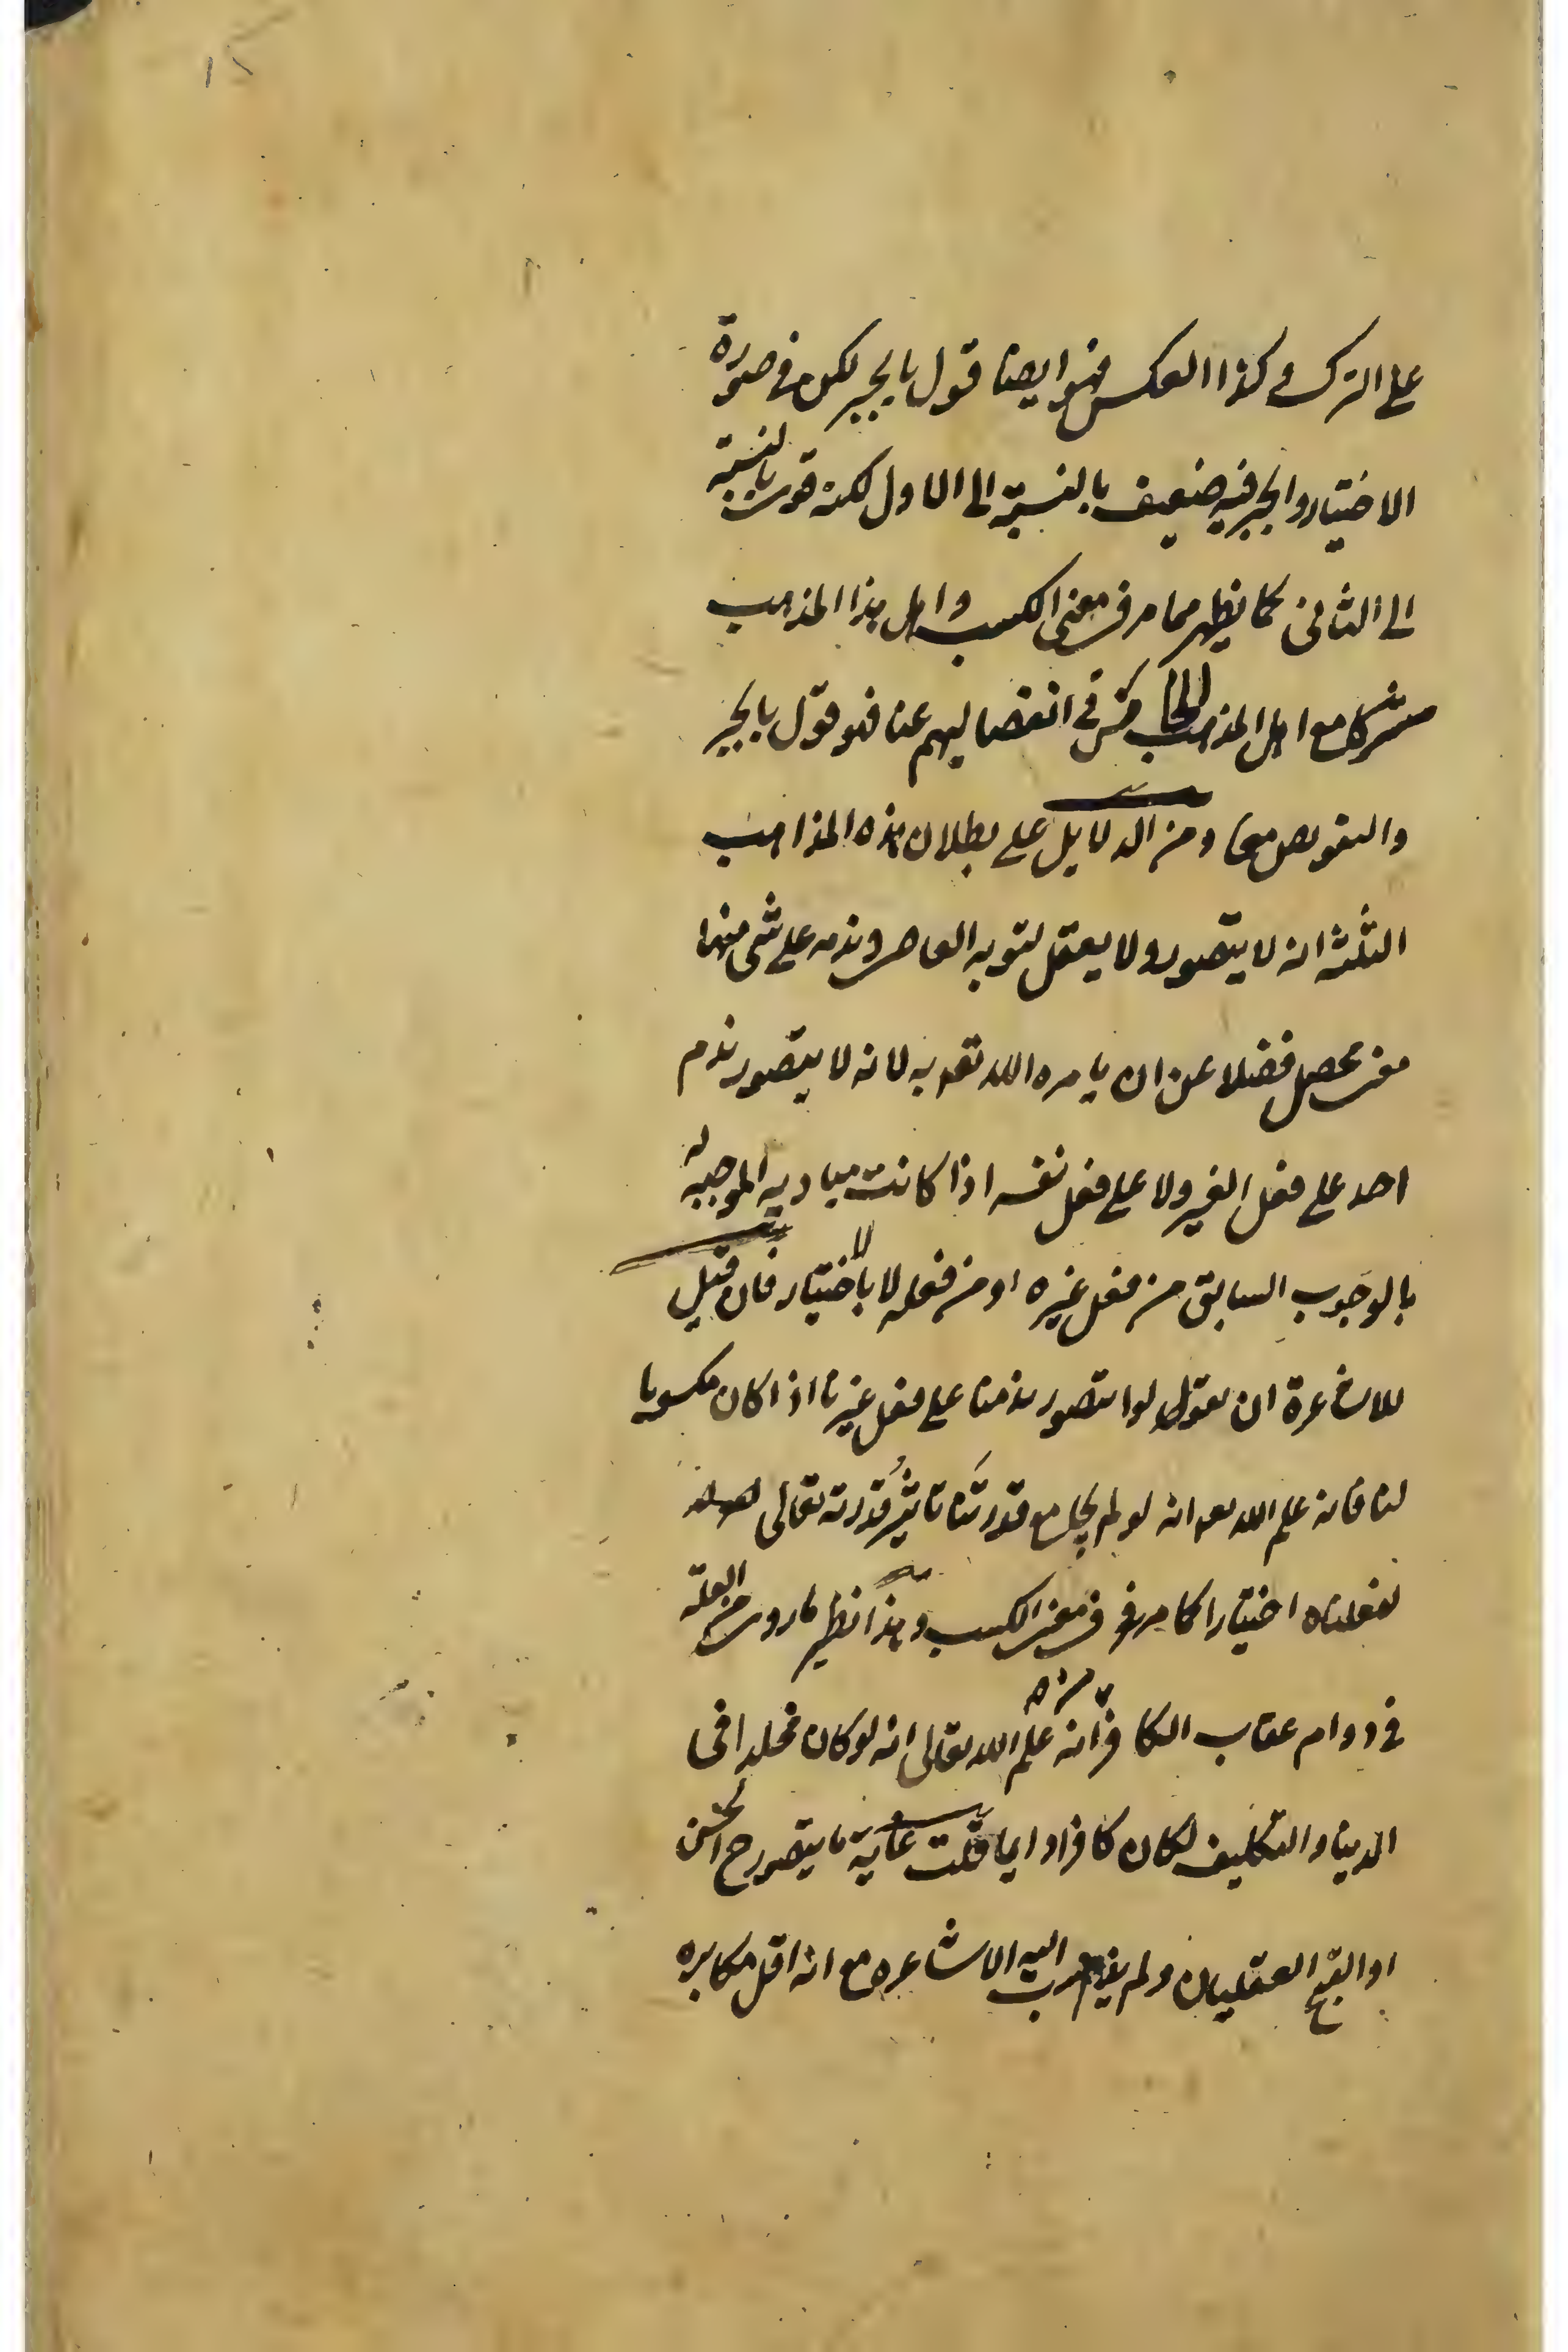 على الترك وكذا العكس فهو ايضا قول بالجبر لكن في صورة
الاختيار والجبر فيه ضعيف بالنسبة الى الاول لكنه قوي بالنسبة
الى الثاني كما يظهر مما مر في معنى الكسب واهل هذا المذهب
مشترك مع اهل المذهب الخامس في انفصاليهم عنا فهو قول بالجبر
والتفويض معا ومن الدلايل على بطلان هذه المذاهب
الثلثة انه لا يتصور ولا يعقل لتوبه العاصي وندمه على شي منها
معنى محصل فضلا عن ان يامره الله تعه به لانه لا يتصور ندم
احد على فعل الغير ولا على فعل نفسه اذا كانت مباديه الموجبه له
بالوجوب السابق من فعل غيره او من فعله لا بالاختيار فان قيل
للاشاعرة ان يقولوا يتصور ندمنا على فعل غيرنا اذا كان مكسوبا
لنا فانه علم الله تعه انه لو لم يجامع قدرتنا تاثير قدرته تعالى
لفعلناه اختيارا كما مر في معنى الكسب وهذا نظير ما روي من العلة
في دوام عقاب الكافر انه علم الله تعالى انه لو كان مخلدا في
الدنيا والتكليف لكان كافرا دايما قلت غاية ما يتصور ح الحسن
او القبح العقليان ولم يذهب اليه الاشاعره مع انه اقل مكابره